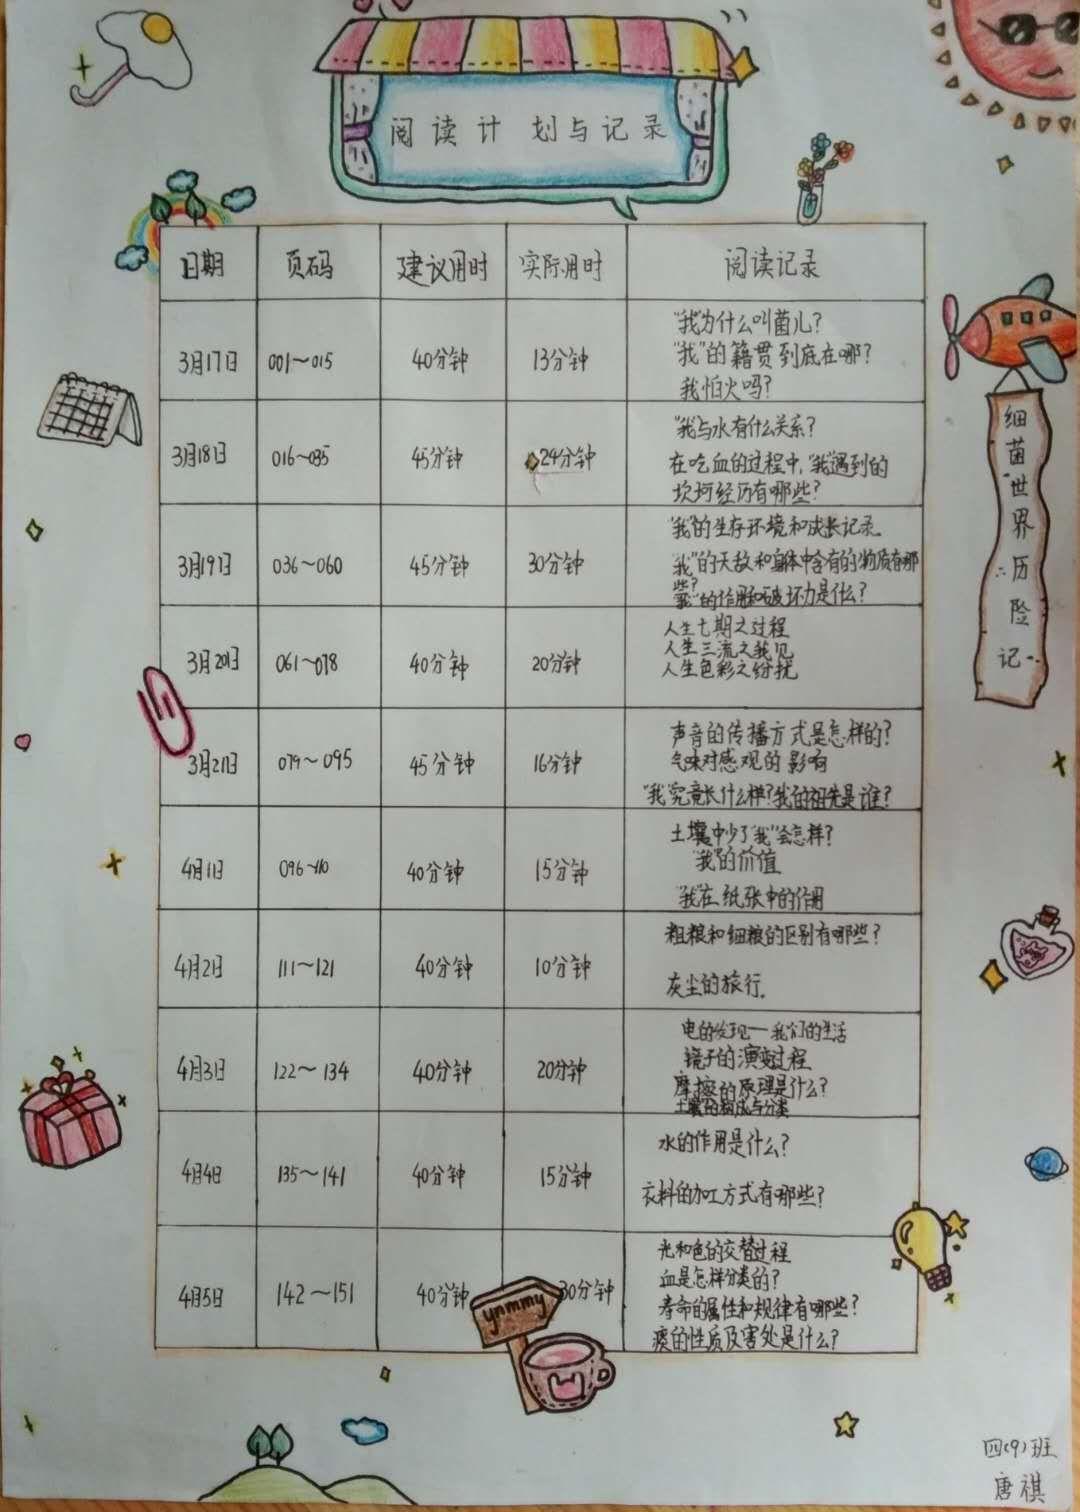 阅读计划与记录
日期 页码 建议用时 实际用时 阅读记录
3月17日 001～015 40分钟 13分钟
"我"为什么叫菌儿?
"我"的籍贯到底在哪?
我怕火吗?
3月18日 016～035 45分钟 24分钟
"我与水有什么关系?
在吃血的过程中,"我"遇到的
坎坷经历有哪些?
3月19日 036～060 45分钟 30分钟
"我"的生存环境和成长记录
"我"的天敌和身体中含有的物质有哪
些?
"我"的作用和破坏力是什么?
3月20日 061～078 40分钟 20分钟
人生七期之过程
人生三流之我见
人生色彩之纷扰
3月21日 079～095 45分钟 16分钟
声音的传播方式是怎样的?
气味对感观的影响
"我"究竟长什么样?我的祖先是谁?
4月1日 096~110 40分钟 15分钟
土壤中少了"我"会怎样?
"我"的价值
"我"在纸张中的作用
4月2日 111～121 40分钟 10分钟
粗粮和细粮的区别有哪些?
灰尘的旅行.
4月3日 122～134 40分钟 20分钟
电的发现—我们的生活
镜子的演变过程
摩擦的原理是什么?
土壤的构成与分类
4月4日 135～141 40分钟 15分钟
水的作用是什么?
衣料的加工方式有哪些?
4月5日 142～151 40分钟 30分钟
光和色的交替过程
血是怎样分类的?
寿命的属性和规律有哪些?
痰的性质及害处是什么?
细菌世界历险记
ynmmy
四(9)班
唐祺